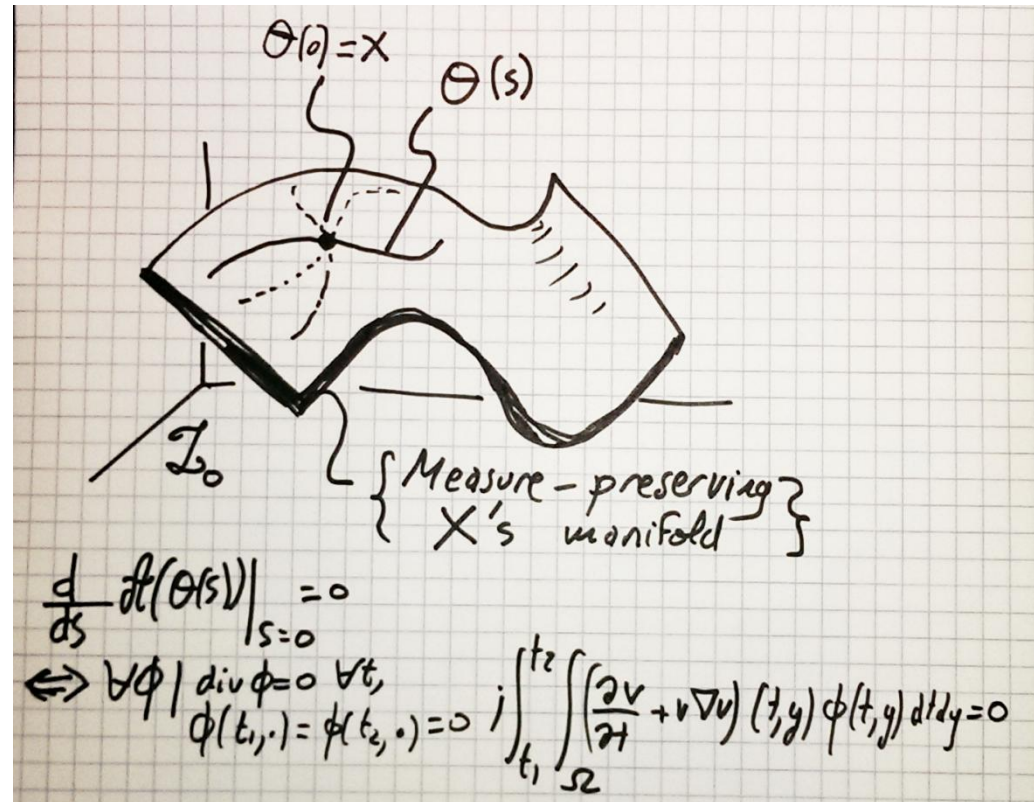 θ(0)=X
θ(s)
I₀
{Measure-preserving
X's manifold}
d/ds A(θ(s))|ₛ₌₀ =0
⇔ ∀ϕ | div ϕ=0 ∀t,
ϕ(t₁,·)=ϕ(t₂,·)=0 ; ∫ₜ₁^t₂ ∫_Ω (∂v/∂t + v∇v)(t,y) ϕ(t,y) dtdy=0